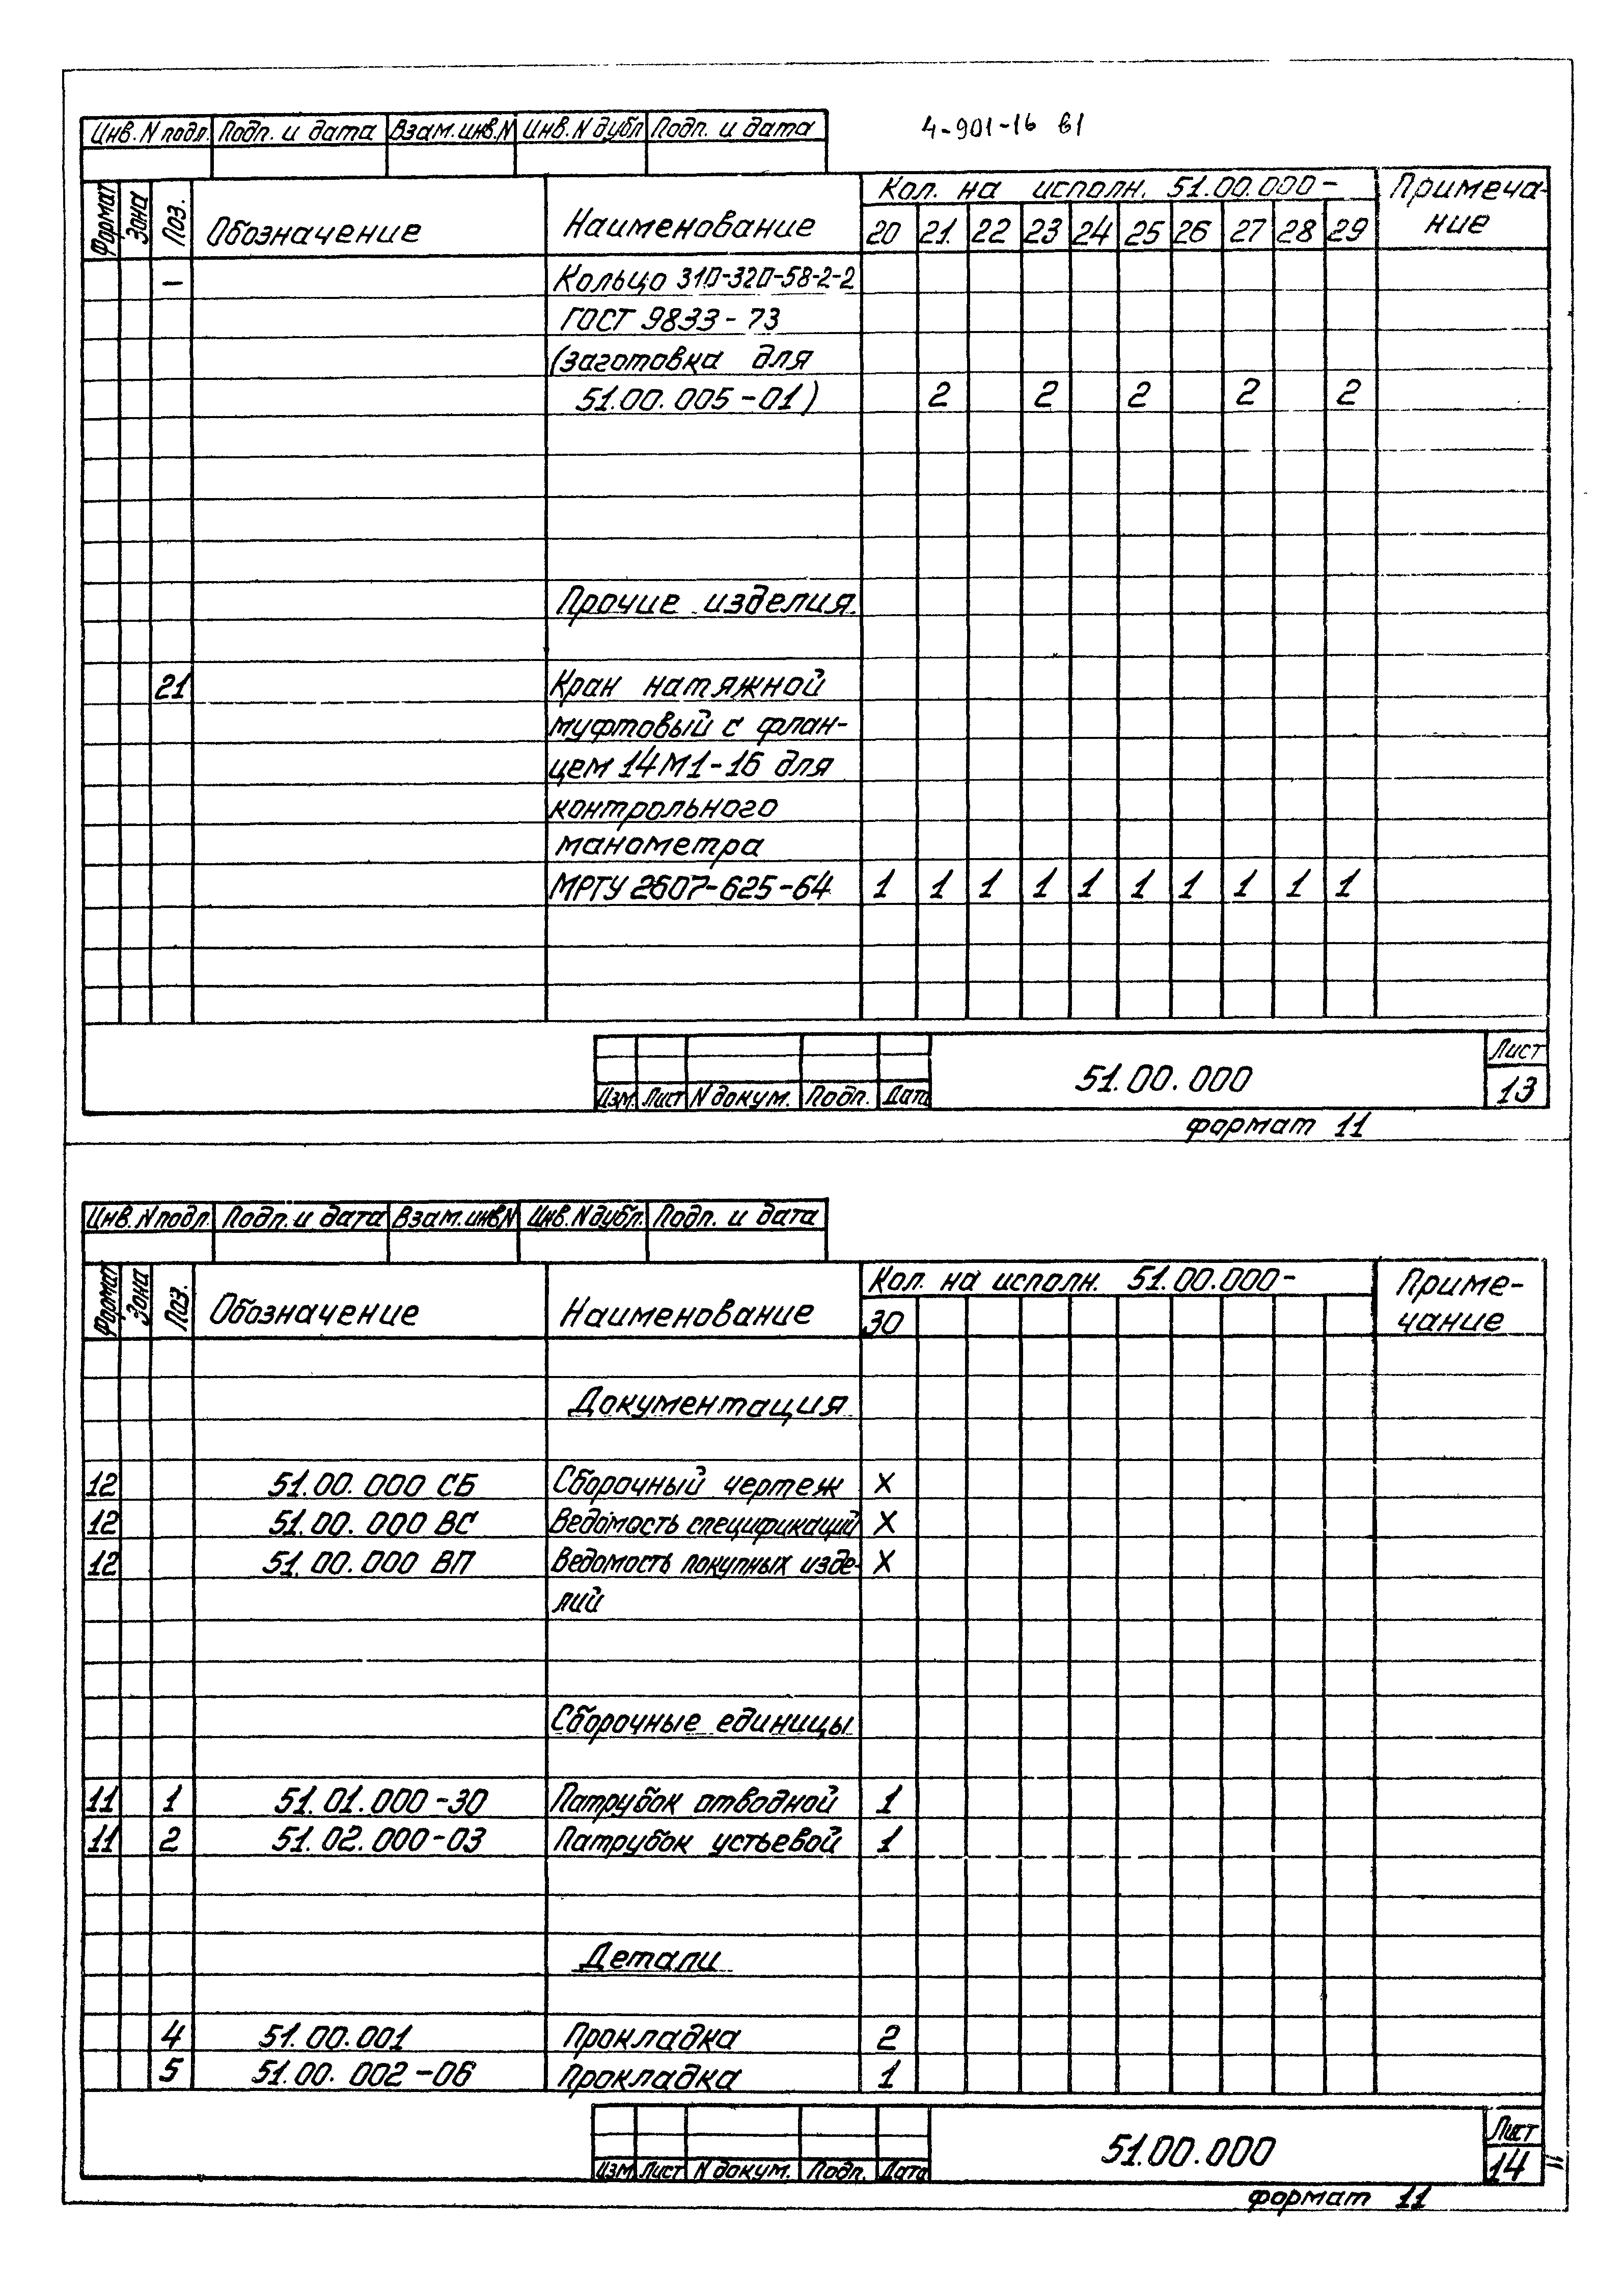 4-901-16 в1
Инв. N подл. Подп. и дата Взам. инв. N Инв. N дубл Подп. и дата
Формат Зона Поз. Обозначение Наименование Кол. на исполн. 51.00.000- Примеча-
20 21 22 23 24 25 26 27 28 29 ние
— Кольцо 310-320-58-2-2
ГОСТ 9833-73
(заготовка для
51.00.005-01) 2 2 2 2 2
Прочие изделия
21 Кран натяжной
муфтовый с флан-
цем 14М1-16 для
контрольного
манометра
МРТУ 2607-625-64 1 1 1 1 1 1 1 1 1 1
51.00.000 Лист
Изм. Лист N докум. Подп. Дата 13
формат 11
Инв. N подл. Подп. и дата Взам. инв N Инв. N дубл. Подп. и дата
Формат Зона Поз. Обозначение Наименование Кол. на исполн. 51.00.000- Приме-
30 чание
Документация
12 51.00.000 СБ Сборочный чертеж Х
12 51.00.000 ВС Ведомость спецификаций Х
12 51.00.000 ВП Ведомость покупных изде- Х
лий
Сборочные единицы
11 1 51.01.000-30 Патрубок отводной 1
11 2 51.02.000-03 Патрубок устьевой 1
Детали
4 51.00.001 Прокладка 2
5 51.00.002-06 Прокладка 1
51.00.000 Лист
Изм Лист N докум. Подп. Дата 14
11
формат 11